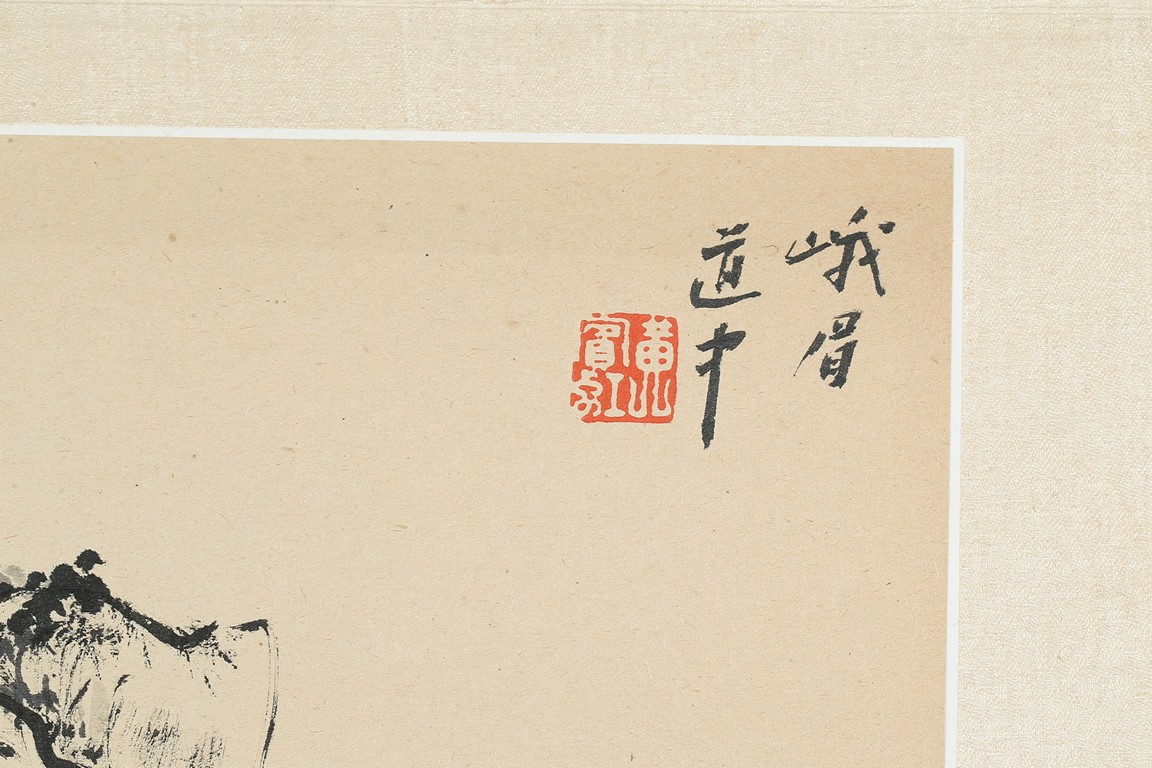 峨眉
道中
黄山
賓虹